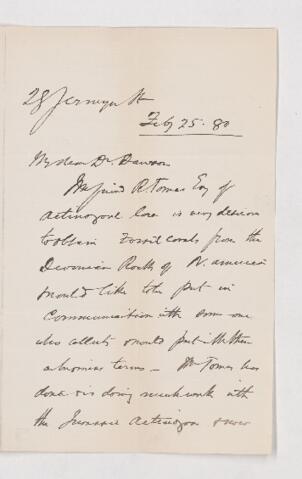 28 Jermyn St
Feby 25. 80
My dear Dr. Dawson
My friend R Tomes Esq of
is very desirous
to obtain fossil corals from the
Devonian Rocks of N. America
would like to be put in
communication with some one
who collects & would put with them
a business terms — Mr Tomes has
done & is doing much work with
the Jurassic Actinozoa & now